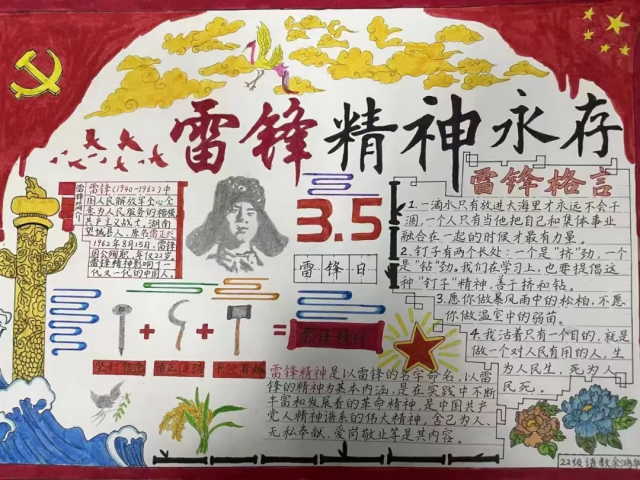 雷锋精神永存
雷锋简介
雷锋(1940-1962)中
国人民解放军全心全
意为人民服务的楷模
共产主义战士，湖南
望城县人，原名雷正兴
1962年8月15日，雷锋
因公殉职，年仅22岁。
雷锋精神影响了一
代又一代的中国人。
3.5
雷锋日
+
+
=
雷锋精神是以雷锋的名字命名，以雷
锋的精神为基本内涵，是在实践中不断
丰富和发展着的革命精神，是中国共产
党人精神谱系的伟大精神，舍己为人、
无私奉献、爱岗敬业等是其内容。
雷锋格言
1.一滴水只有放进大海里才永远不会干
涸，一个人只有当他把自己和集体事业
融合在一起的时候才最有力量。
2.钉子有两个长处：一个是"挤"劲，一个
是"钻"劲。我们在学习上，也要提倡这
种"钉子"精神，善于挤和钻。
3.愿你做暴风雨中的松柏，不愿
你做温室中的弱苗。
4.我活着只有一个目的，就是
做一个对人民有用的人，生
为人民生，死为人
民死。
22级语教